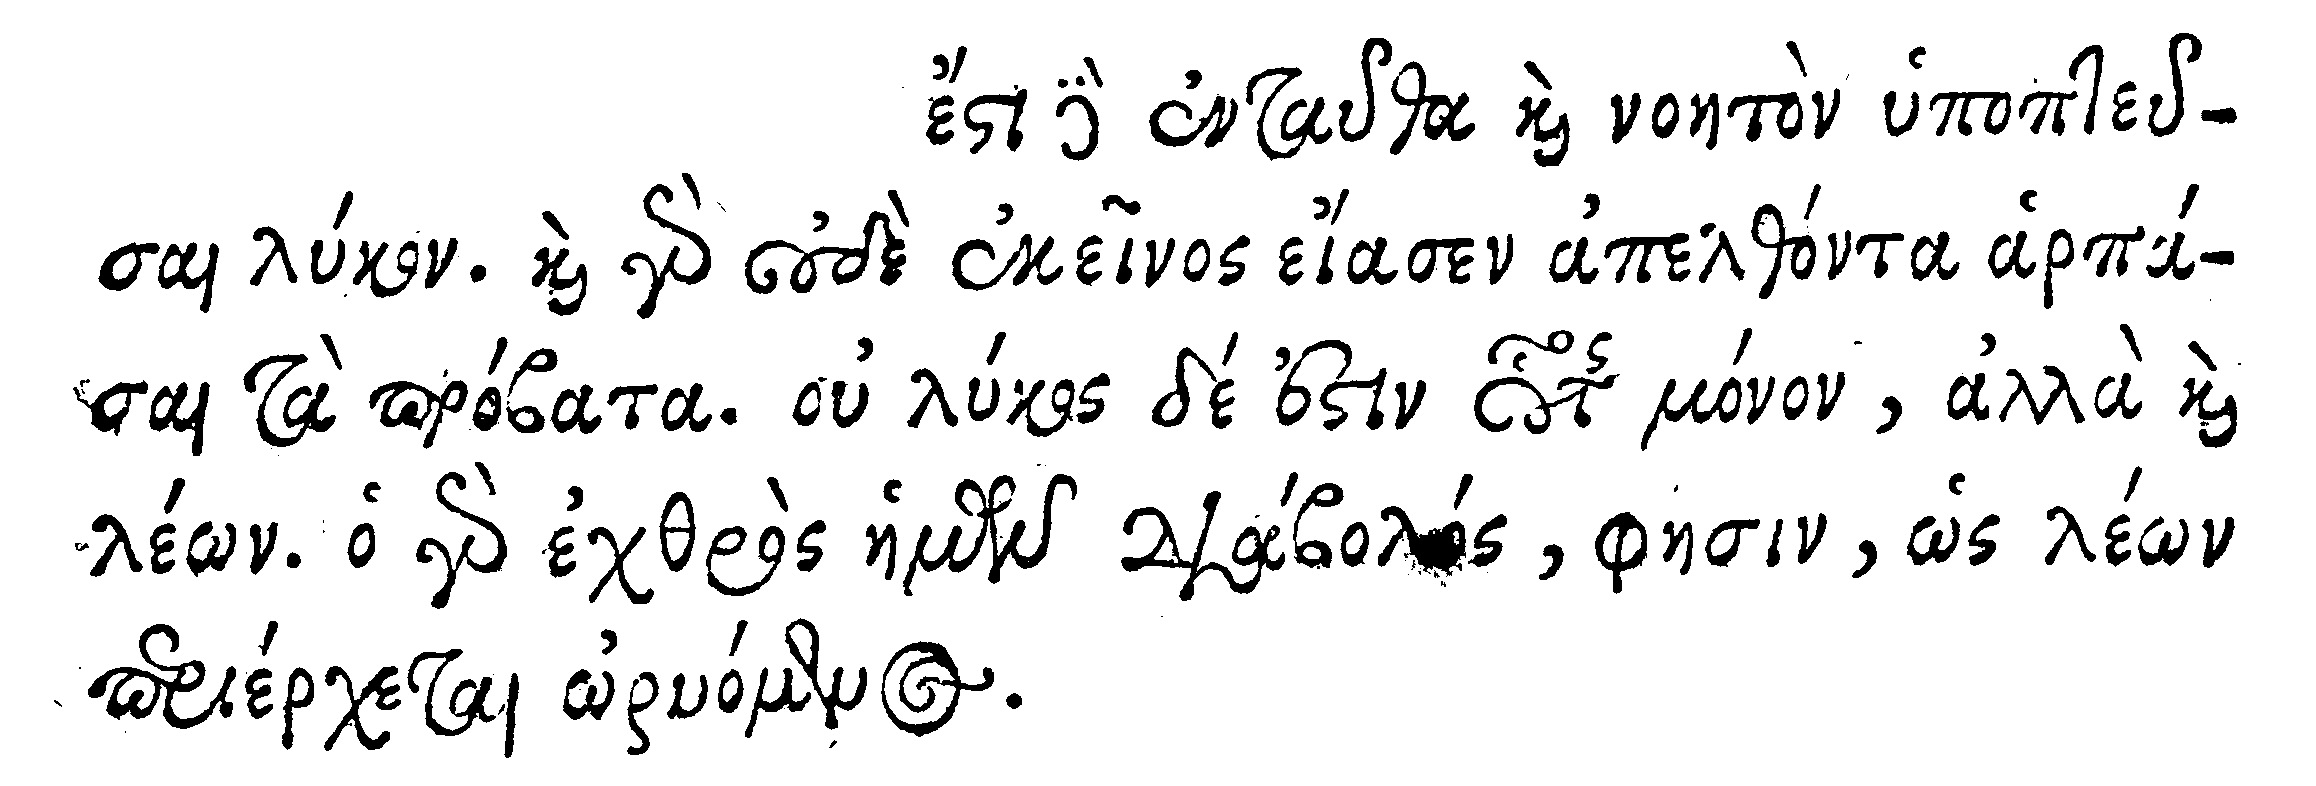 ἔστι δὲ ἐνταῦθα καὶ νοητὸν ὑποπτεῦ-
σαι λύκον. καὶ γὰρ οὐδὲ ἐκεῖνος εἴασεν ἀπελθόντα ἁρπά-
σαι τὰ πρόβατα. οὐ λύκος δέ ἐστιν οὗτος μόνον, ἀλλὰ καὶ
λέων. ὁ γὰρ ἐχθρὸς ἡμῶν διάβολός, φησιν, ὡς λέων
περιέρχεται ὠρυόμενος.